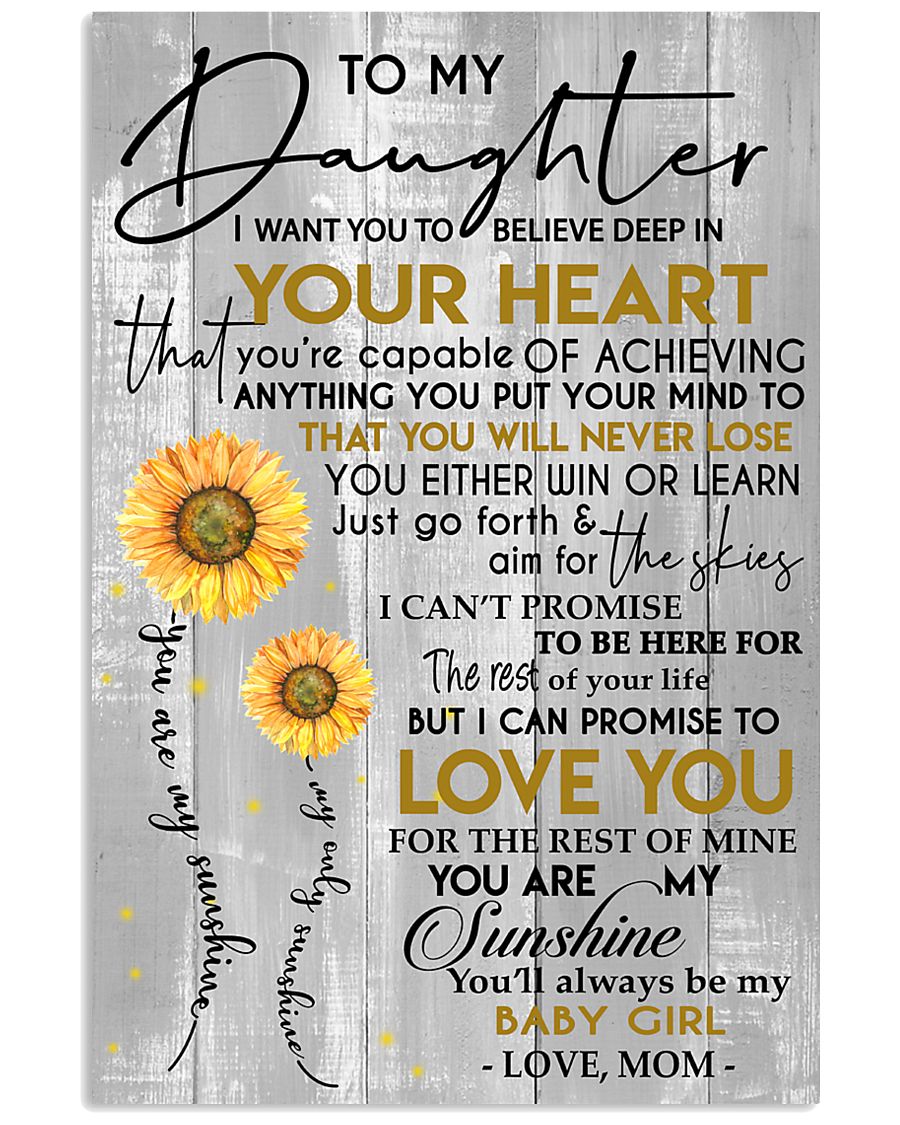 TO MY
Daughter
I WANT YOU TO BELIEVE DEEP IN
YOUR HEART
that you're capable OF ACHIEVING
ANYTHING YOU PUT YOUR MIND TO
THAT YOU WILL NEVER LOSE
YOU EITHER WIN OR LEARN
Just go forth &
aim for the skies
I CAN'T PROMISE
TO BE HERE FOR
The rest of your life
BUT I CAN PROMISE TO
LOVE YOU
FOR THE REST OF MINE
YOU ARE MY
Sunshine
You'll always be my
BABY GIRL
- LOVE, MOM -
you are my sunshine
my only sunshine